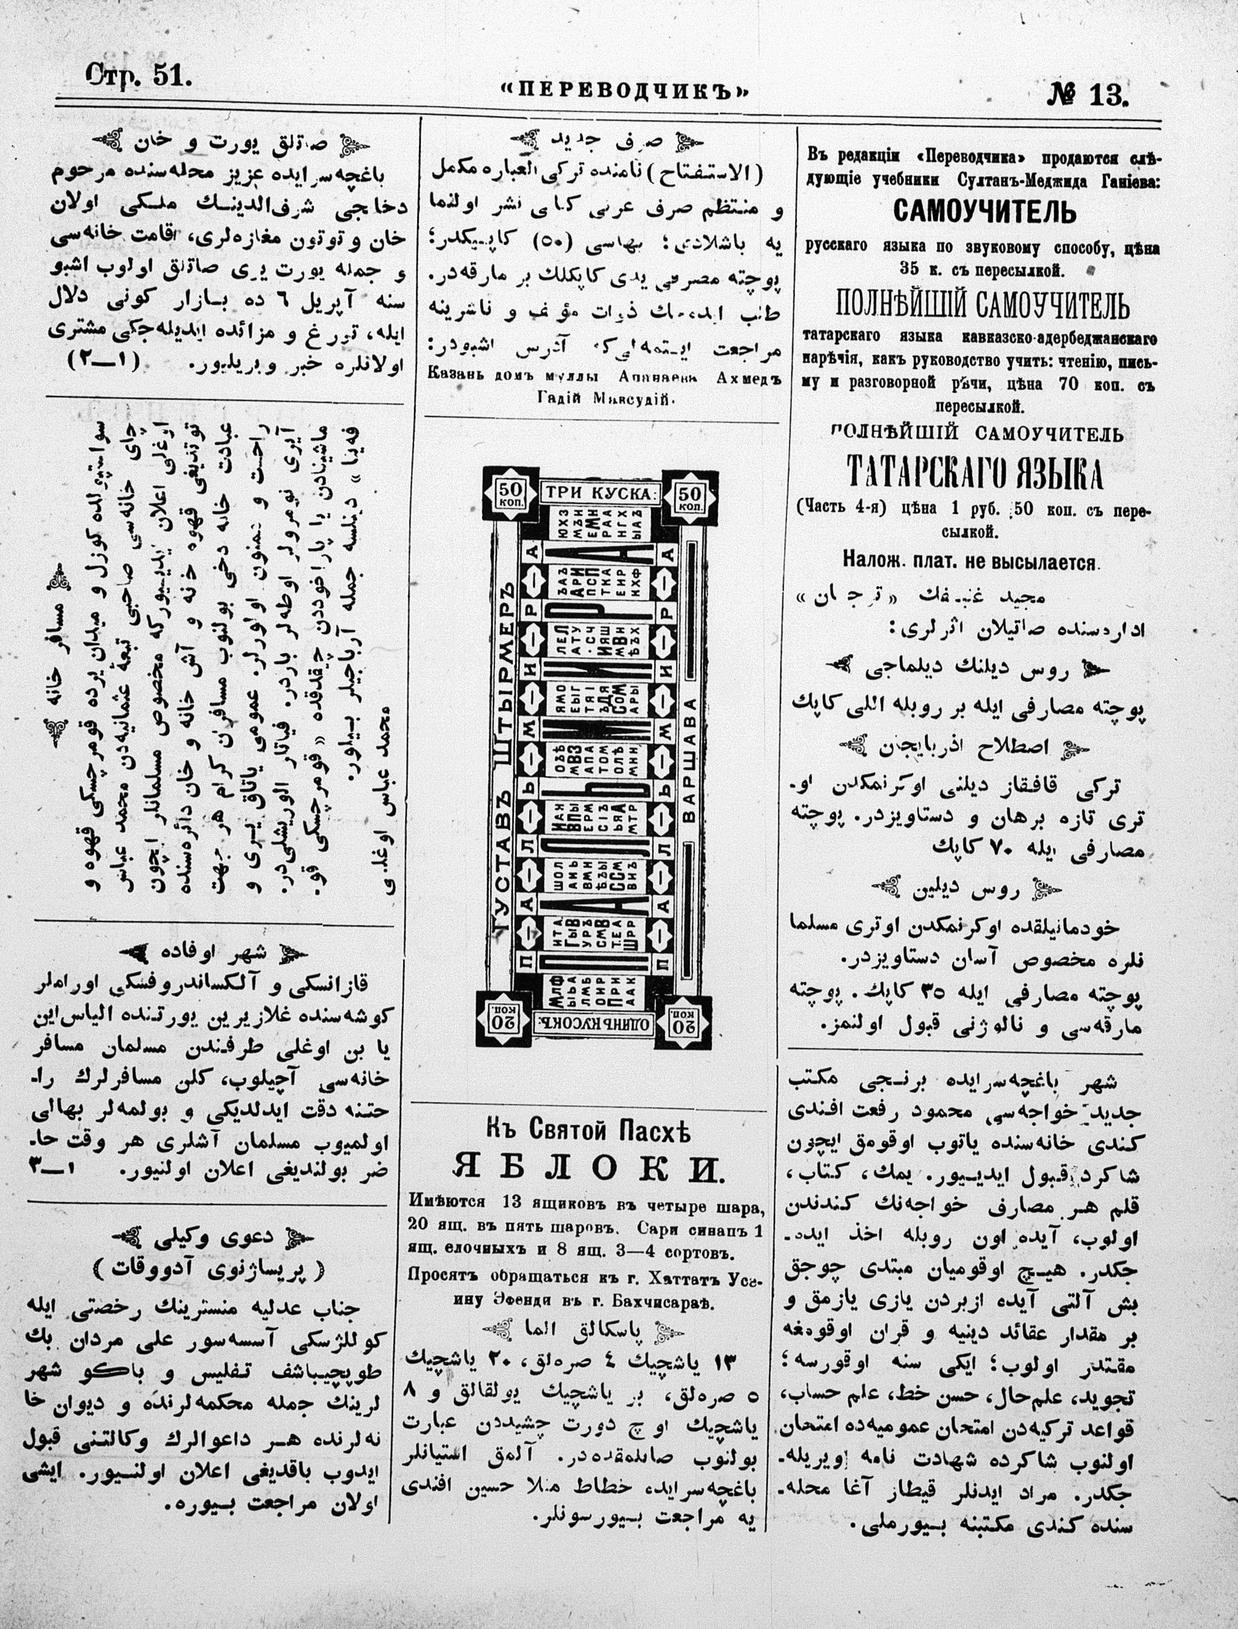 Стр. 51.
«ПЕРЕВОДЧИКЪ»
№ 13.
صاتلق يورت و خان
باغچه‌سرايده عزيز محله‌سنده مرحوم
دخاجى شرف‌الدينك ملكى اولان
خان و توتون مغازه‌لرى، اقامت خانه‌سى
و جمله يورت يرى صاتلق اولوب اشبو
سنه آپريل ٦ ده بازار كونى دلال
ايله، تورغ و مزائده ايديله‌جكى مشترى
اولانلره خبر ويريليور. (١—٢)
مسافر خانه
سواستپولده كوزل و ميدان يرده قومرچسكى قهوه و
چاى خانه‌سى صاحبى تبعهٔ عثمانيه‌دن محمد عباس
اوغلى اعلان ايدييوركه مخصوص مسلمانلر ايچون
توتديغى قهوه خانه و آش خانه و خان دائره‌سنده
عبادت خانه دخى بولنوب مسافران كرام هر جهت
راحت و ممنون اولورلر. عمومى ياتاق يرى و
آيرى نومرولر اوطه‌لر باردر. فياتلر الويريشلى‌در.
ماشينادن يا پاراخوددن چيقدقده «قومرچسكى قو.
فه‌ينا» ديلسه جمله آرباجيلر بيلور.
محمد عباس اوغلى
شهر اوفاده
قازانسكى و آلكساندروفسكى اوراملر
كوشه‌سنده غلازيرين يورتنده الياس‌اين
يا بن اوغلى طرفندن مسلمان مسافر
خانه‌سى آچيلوب، كلن مسافرلرك را-
حتنه دقت ايدلديكى و بولمه‌لر بهالى
اولميوب مسلمان آشلرى هر وقت حا-
ضر بولنديغى اعلان اولنيور. ١—٣
دعوى وكيلى
(پريساژنوى آدووقات)
جناب عدليه منسترينك رخصتى ايله
كوللژسكى آسسه‌سور على مردان بك
طوپچيباشف تفليس و باكو شهر
لرينك جمله محكمه‌لرنده و ديوان خا
نه‌لرنده هر داعوالرك وكالتنى قبول
ايدوب باقديغى اعلان اولنيور. ايشى
اولان مراجعت بيوره.
صرف جديد
(الاستفتاح) نامنده تركى العباره مكمل
و منتظم صرف عربى كتابى نشر اولنما
يه باشلادى؛ بهاسى (٥٠) كاپيكدر؛
پوچته مصرفى يدى كاپكلك بر مارقه‌در.
طلب ايده‌جك ذوات مؤلف و ناشرينه
مراجعت ايتمه‌لى‌كه آدرس اشبودر:
Казань домъ муллы Апанаева Ахмедъ
Гадій Максудій.
50 коп.
ТРИ КУСКА:
50 коп.
ГУСТАВЪ ШТЫРМЕРЪ
ПАЛЬМИРА
ВАРШАВА
20 коп.
ОДИНЪ КУСОКЪ:
20 коп.
Къ Святой Пасхѣ
ЯБЛОКИ.
Имѣются 13 ящиковъ въ четыре шара,
20 ящ. въ пять шаровъ. Сари синапъ 1
ящ. елочныхъ и 8 ящ. 3—4 сортовъ.
Просятъ обращаться къ г. Хаттатъ Усе-
ину Эфенди въ г. Бахчисараѣ.
پاسكالق الما
١٣ ياشچيك ٤ صره‌لق، ٢٠ ياشچيك
٥ صره‌لق، بر ياشچيك يولقالق و ٨
ياشچيك اوچ دورت چشيددن عبارت
بولنوب صاتلمقده‌در. آلمق استيانلر
باغچه‌سرايده، خطاط منلا حسين افندى
يه مراجعت بيورسونلر.
Въ редакціи «Переводчика» продаются слѣ-
дующіе учебники Султанъ-Меджида Ганіева:
САМОУЧИТЕЛЬ
русскаго языка по звуковому способу, цѣна
35 к. съ пересылкой.
ПОЛНѢЙШІЙ САМОУЧИТЕЛЬ
татарскаго языка кавказско-адербеджанскаго
нарѣчія, какъ руководство учить: чтенію, пись-
му и разговорной рѣчи, цѣна 70 коп. съ
пересылкой.
ПОЛНѢЙШІЙ САМОУЧИТЕЛЬ
ТАТАРСКАГО ЯЗЫКА
(Часть 4-я) цѣна 1 руб. 50 коп. съ пере-
сылкой.
Налож. плат. не высылается.
مجيد غنيفك «ترجمان»
اداره‌سنده صاتيلان اثرلرى:
روس ديلنك ديلماجى
پوچته مصارفى ايله بر روبله اللى كاپك
اصطلاح اذربايجان
تركى قافقاز ديلنى اوكرنمكدن او-
ترى تازه برهان و دستاويزدر. پوچته
مصارفى ايله ٧٠ كاپك
روس ديلين
خودمانيلقده اوكرنمكدن اوترى مسلما
نلره مخصوص آسان دستاويزدر.
پوچته مصارفى ايله ٣٥ كاپك. پوچته
مارقه‌سى و نالوژنى قبول اولنمز.
شهر باغچه‌سرايده برنجى مكتب
جديد خواجه‌سى محمود رفعت افندى
كندى خانه‌سنده ياتوب اوقومق ايچون
شاكرد قبول ايدييور. يمك، كتاب،
قلم هر مصارف خواجه‌نك كندندن
اولوب، آيده اون روبله اخذ ايده-
جكدر. هيچ اوقوميان مبتدى چوجق
بش آلتى آيده ازبردن يازى يازمق و
بر مقدار عقائد دينيه و قران اوقومغه
مقتدر اولوب؛ ايكى سنه اوقورسه؛
تجويد، علم‌حال، حسن خط، علم حساب،
قواعد تركيه‌دن امتحان عموميه‌ده امتحان
اولنوب شاكرده شهادت نامه ويريله-
جكدر. مراد ايدنلر قيطاز آغا محله-
سنده كندى مكتبنه بيورملى.